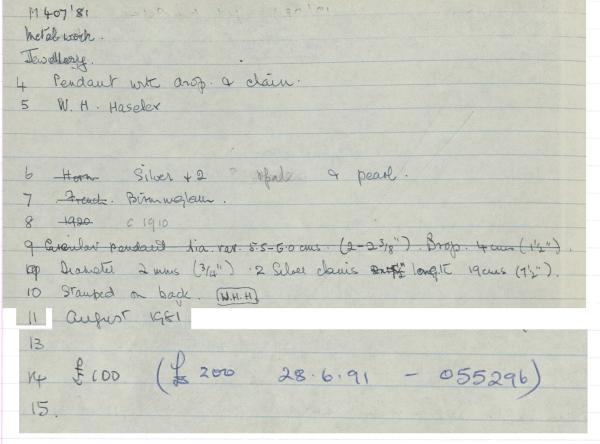 M 407'81
Metalwork.
Jewellery.
4 Pendant with drop & chain.
5 W. H. Haseler
6 Horn Silver + 2 ? opals & pearl.
7 French. Birmingham.
8 1920 c 1910
9 Circular pendant dia. var. 5.5-6.0 cms. (2-2 3/8"). Drop. 4 cms (1½").
Diameter 2 mms (3/4") 2 Silver chains length 19 cms (7½").
10 Stamped on back. W.H.H
11 August 1981
13
14 £100 (£ 200 28.6.91 - 055296)
15.